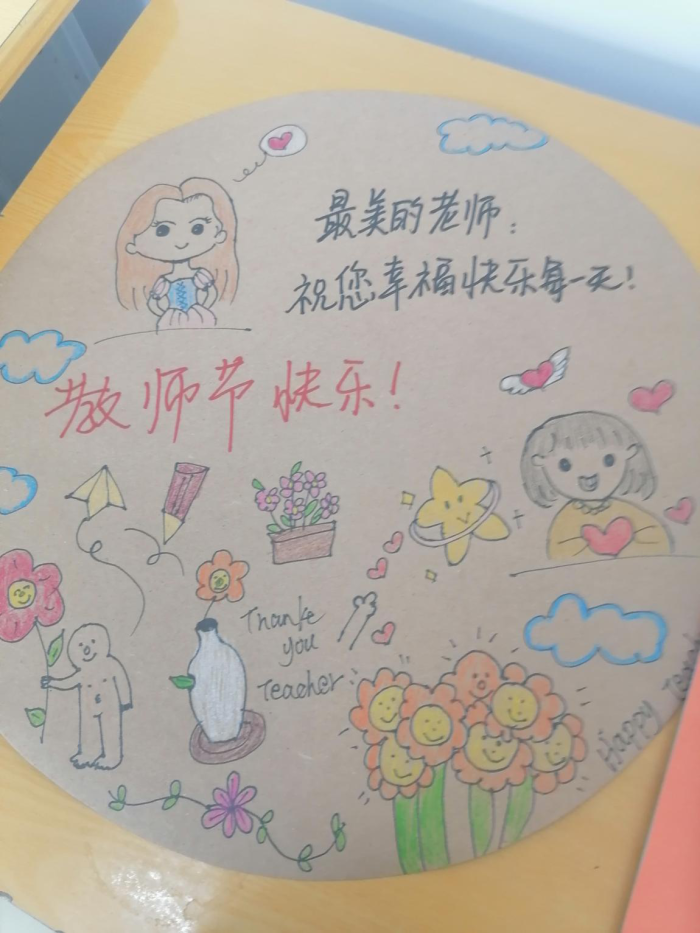 最美的老师：
祝您幸福快乐每一天！
教师节快乐！
Thanke
you
Teacher:
Happy